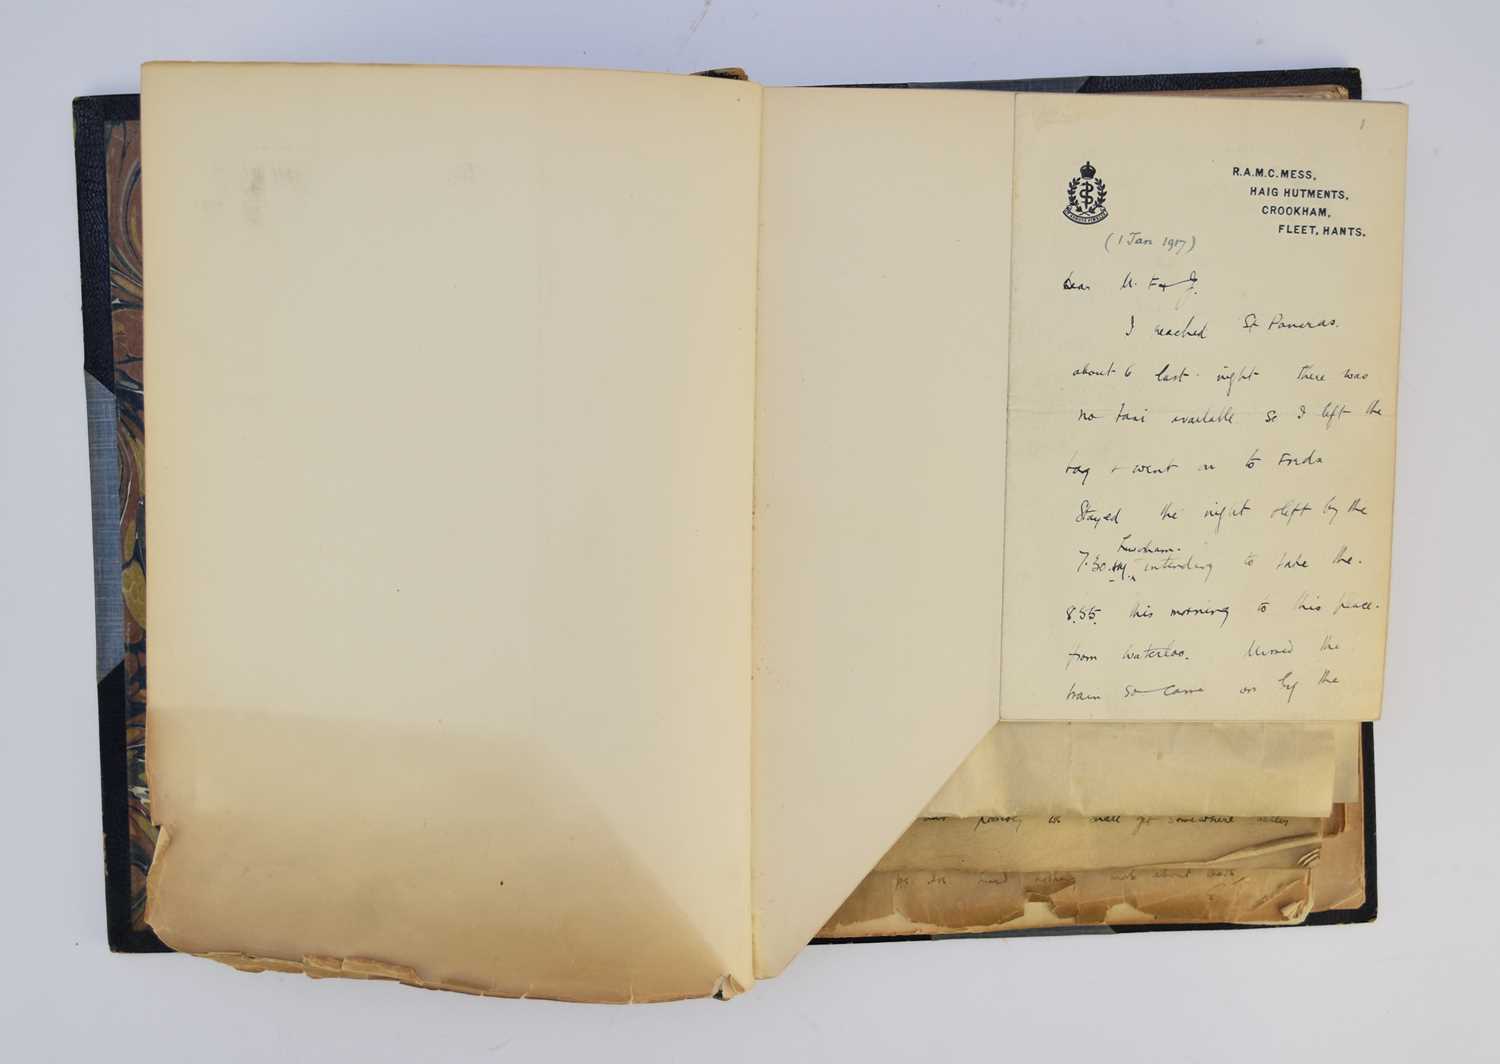 1
R.A.M.C. MESS,
HAIG HUTMENTS,
CROOKHAM,
FLEET, HANTS.
(1 Jan 1917)
Dear M. F & J.
I reached St Pancras.
about 6 last night there was
no taxi available so I left the
bag & went on to Freda
Stayed the night & left by the
Lewisham.
7.30 intending to take the.
8.55. this morning to this place.
from Waterloo. Missed the
train so came on by the
possibly we shall get somewhere
had nothing about